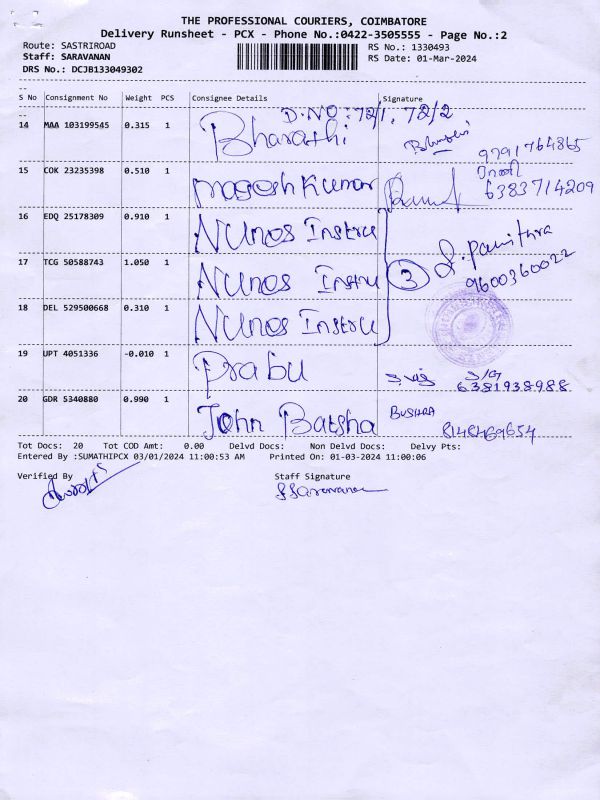 THE PROFESSIONAL COURIERS, COIMBATORE
Delivery Runsheet - PCX - Phone No.:0422-3505555 - Page No.:2
Route: SASTRIROAD RS No.: 1330493
Staff: SARAVANAN RS Date: 01-Mar-2024
DRS No.: DCJB133049302
S No Consignment No Weight PCS Consignee Details Signature
D.NO:72/1, 72/2
14 MAA 103199545 0.315 1 Bharathi
9791764865
15 COK 23235398 0.510 1 Magesh Kumar
6383714209
16 EDQ 25178309 0.910 1 Nunos Instru
17 TCG 50588743 1.050 1 Nunos Instru 3 S. Pavithra
9600360022
18 DEL 529500668 0.310 1 Nunos Instru
19 UPT 4051336 -0.010 1 Prabu S/G
6381938988
20 GDR 5340880 0.990 1 John Batsha BUSHRA
8148469654
Tot Docs: 20 Tot COD Amt: 0.00 Delvd Docs: Non Delvd Docs: Delvy Pts:
Entered By :SUMATHIPCX 03/01/2024 11:00:53 AM Printed On: 01-03-2024 11:00:06
Verified By Staff Signature